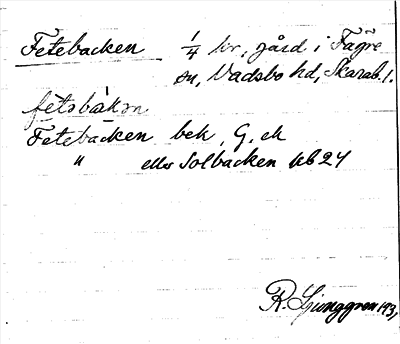 Fetebacken 1/4 kr, gård i Fägre
sn, Vadsbo hd, Skarab. l.
fètsbàkm
Fetebacken bek, G. ek
" eller Solbacken kb 24
R. Ljunggren 193,